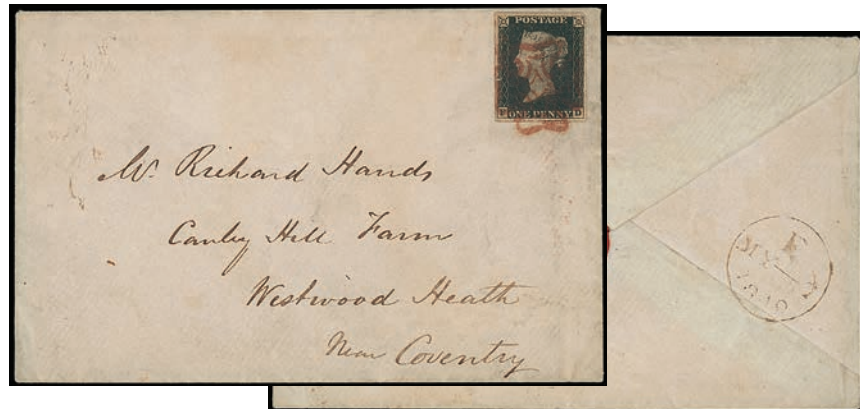 POSTAGE
F ONE PENNY D
Mr. Richard Hands
Canley Hill Farm
Westwood Heath
Near Coventry